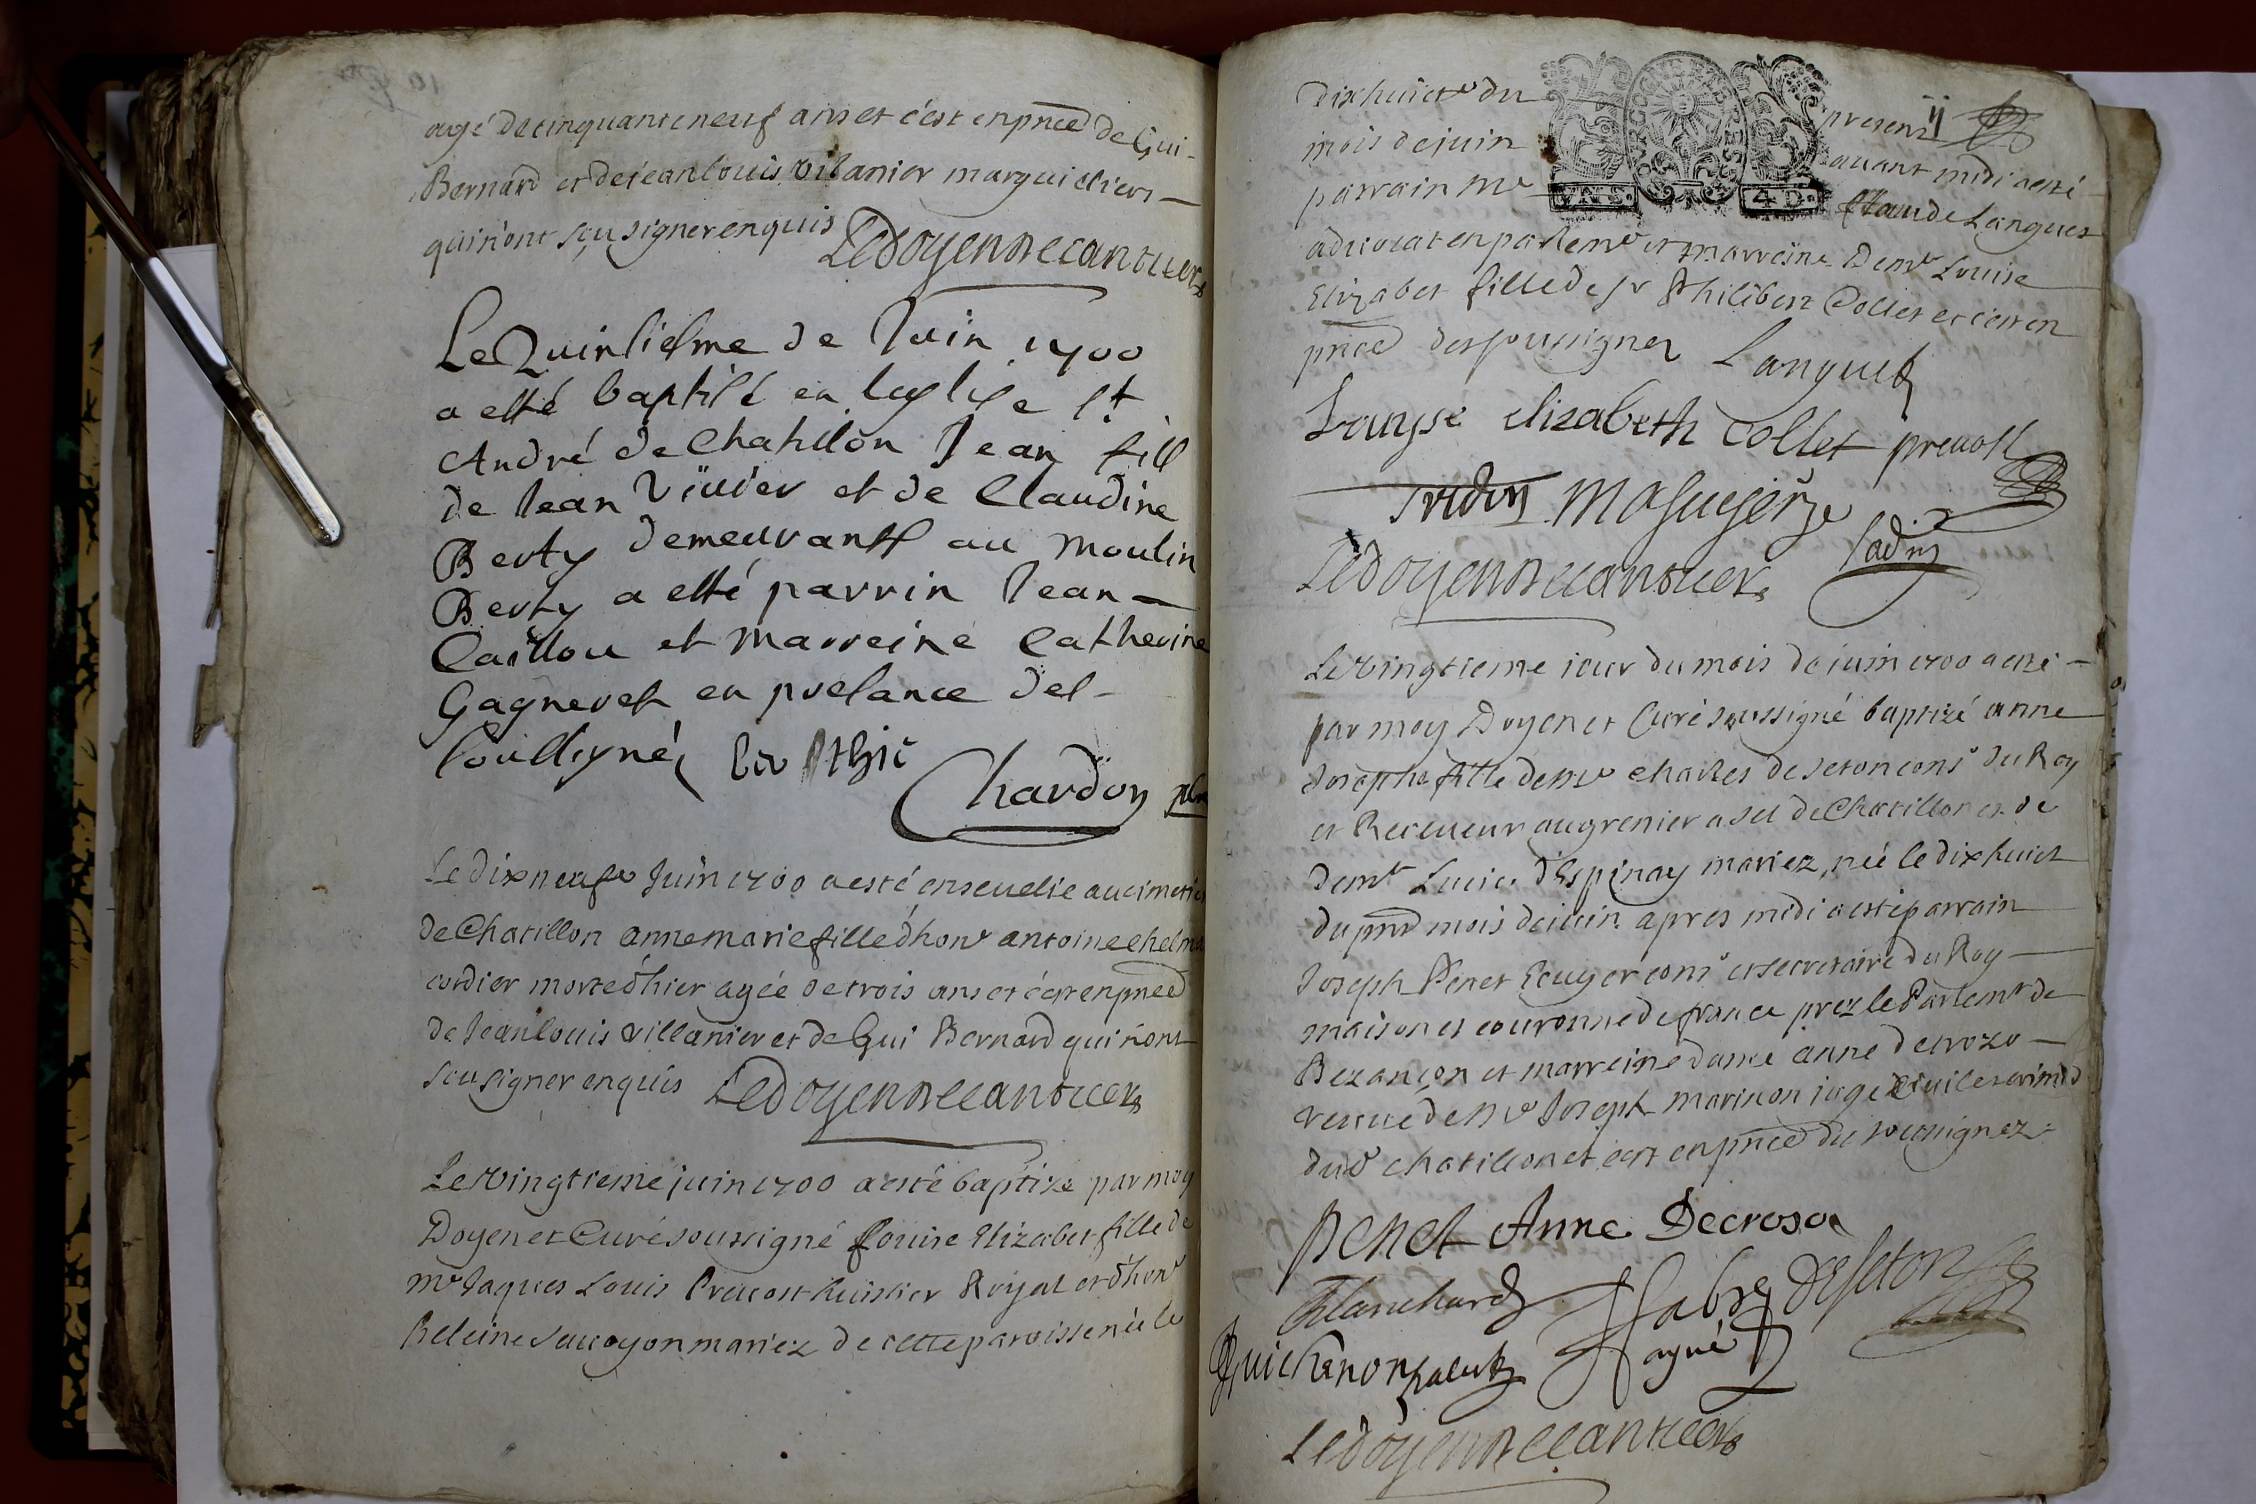 agé de cinquante neuf ans et c'est en pnce de Gui-
Bernard et de jean louis vilanier marguilliers
qui n'ont sçu signer enquis Ledoyen De Cantuer
Le Quinsiesme de Juin 1700
a esté baptisé en leglise st
André de Chatillon Jean fill
de Jean Viuier et de Claudine
Berty demeurant au moulin
Berty a esté parrin Jean
Caillou et marreine Catherine
Gagneret en presance des
soussigné
Chardon
Le dix neufe Juin 1700 a esté enseuelie au cimetie
de Chatillon anne marie fille d'hon antoine
cordier morte d'hier agée de trois ans et c'est en pnce
de Jean louis villanier et de Gui Bernard qui n'ont
sçu signer enquis Ledoyen De Cantuer
Le vingtieme juin 1700 a esté baptize par moy
Doyen et Curé soussigné Louise Elizabet fille de
me Jaques Louis Preuost huissier Royal et d'hon
heleine mariez de cette paroisse née le
dixhuict du present
11
mois de juin auant midi a esté
parrain Me Claude Languet
aduocat en parlemt et marreine Demle Louise
Elizabet fille de sr Philibert Collet et c'est en
pnce des soussignez Languet
Louyse elizabeth Collet preuost
Tridon Masuyer
Ledoyen De Cantuer
Le vingtieme iour du mois de juin 1700 a esté
par moy Doyen et Curé soussigné baptizé anne
Josephe fille de me Charles de seton cons du Roy
et Receueur au grenier a sel de Chatillon et de
demle Lucie d'Espinay mariez, née le dixhuict
du pnt mois de iuin apres midi a esté parrain
Joseph Penet Ecuyer cons et secretaire du Roy
maison et couronne de france prez le Parlemt de
Bezançon et marreine dame anne
veuue de me Joseph marinon iuge Ciuil et crimel
dud chatillon et c'est en pnce du soussignez
Penet Anne Decrosa
Blanchard Fabry deseton
Guichenon
Ledoyen De Cantuer